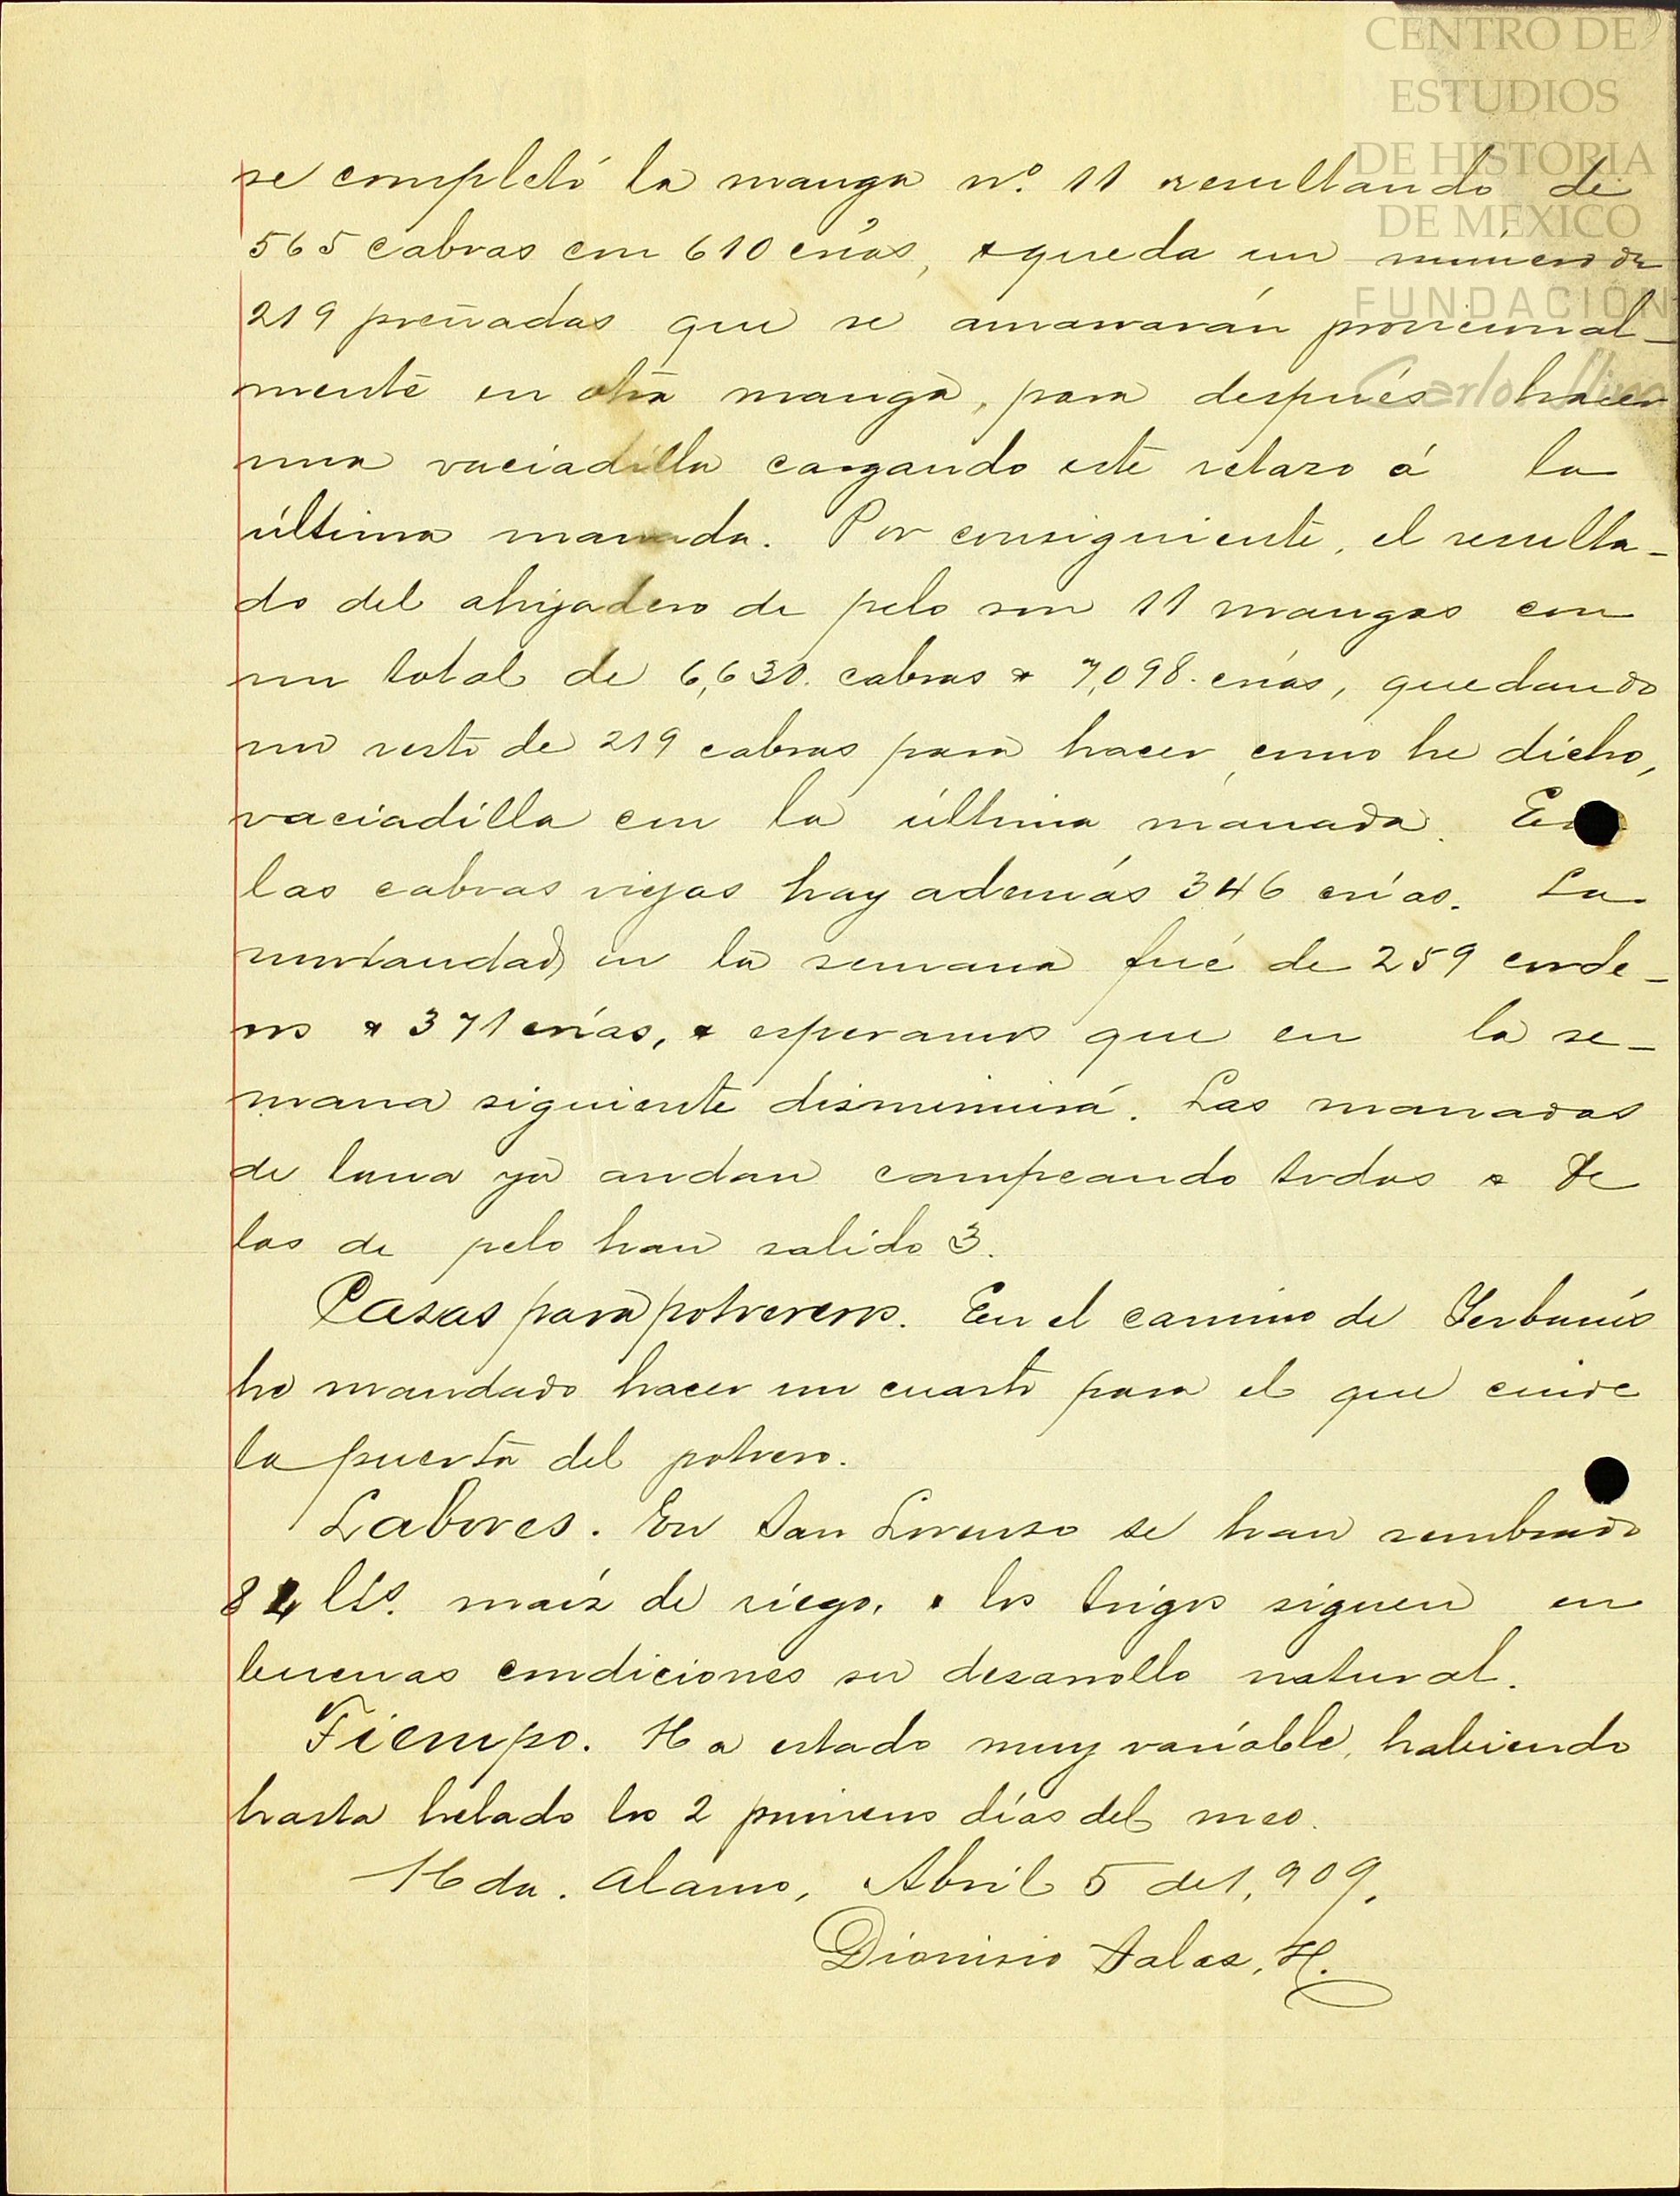 CENTRO DE
ESTUDIOS
DE HISTORIA
DE MÉXICO
FUNDACIÓN
Carlos Slim
se completó la manga nº. 11 resultando de
565 cabras con 610 crías, & queda un número de
219 preñadas que se amanarán provicional-
mente en otra manga, para después hacer
una vaciadilla cargando este retazo á la
última manada. Por consiguiente, el resulta-
do del ahijadero de pelo son 11 mangas con
un total de 6,630. cabras & 7,098. crías, quedando
un resto de 219 cabras para hacer, como he dicho,
vaciadilla con la última manada. En
las cabras viejas hay además 346 crías. La
mortandad en la semana fué de 259 corde-
ros & 371 crías, & esperamos que en la se-
mana siguiente disminuirá. Las manadas
de lana ya andan campeando todas & de
las de pelo han salido 3.
Casas para potreros. En el camino de Yerbanís
he mandado hacer un cuarto para el que cuide
la puerta del potrero.
Labores. En San Lorenzo se han sembrado
84 lts. maíz de riego, & los trigos siguen en
buenas condiciones su desarrollo natural.
Tiempo. Ha estado muy variable, habiendo
hasta helado los 2 primeros días del mes.
Hda. Alamo, Abril 5 de 1,909.
Dionisio Salas, H.